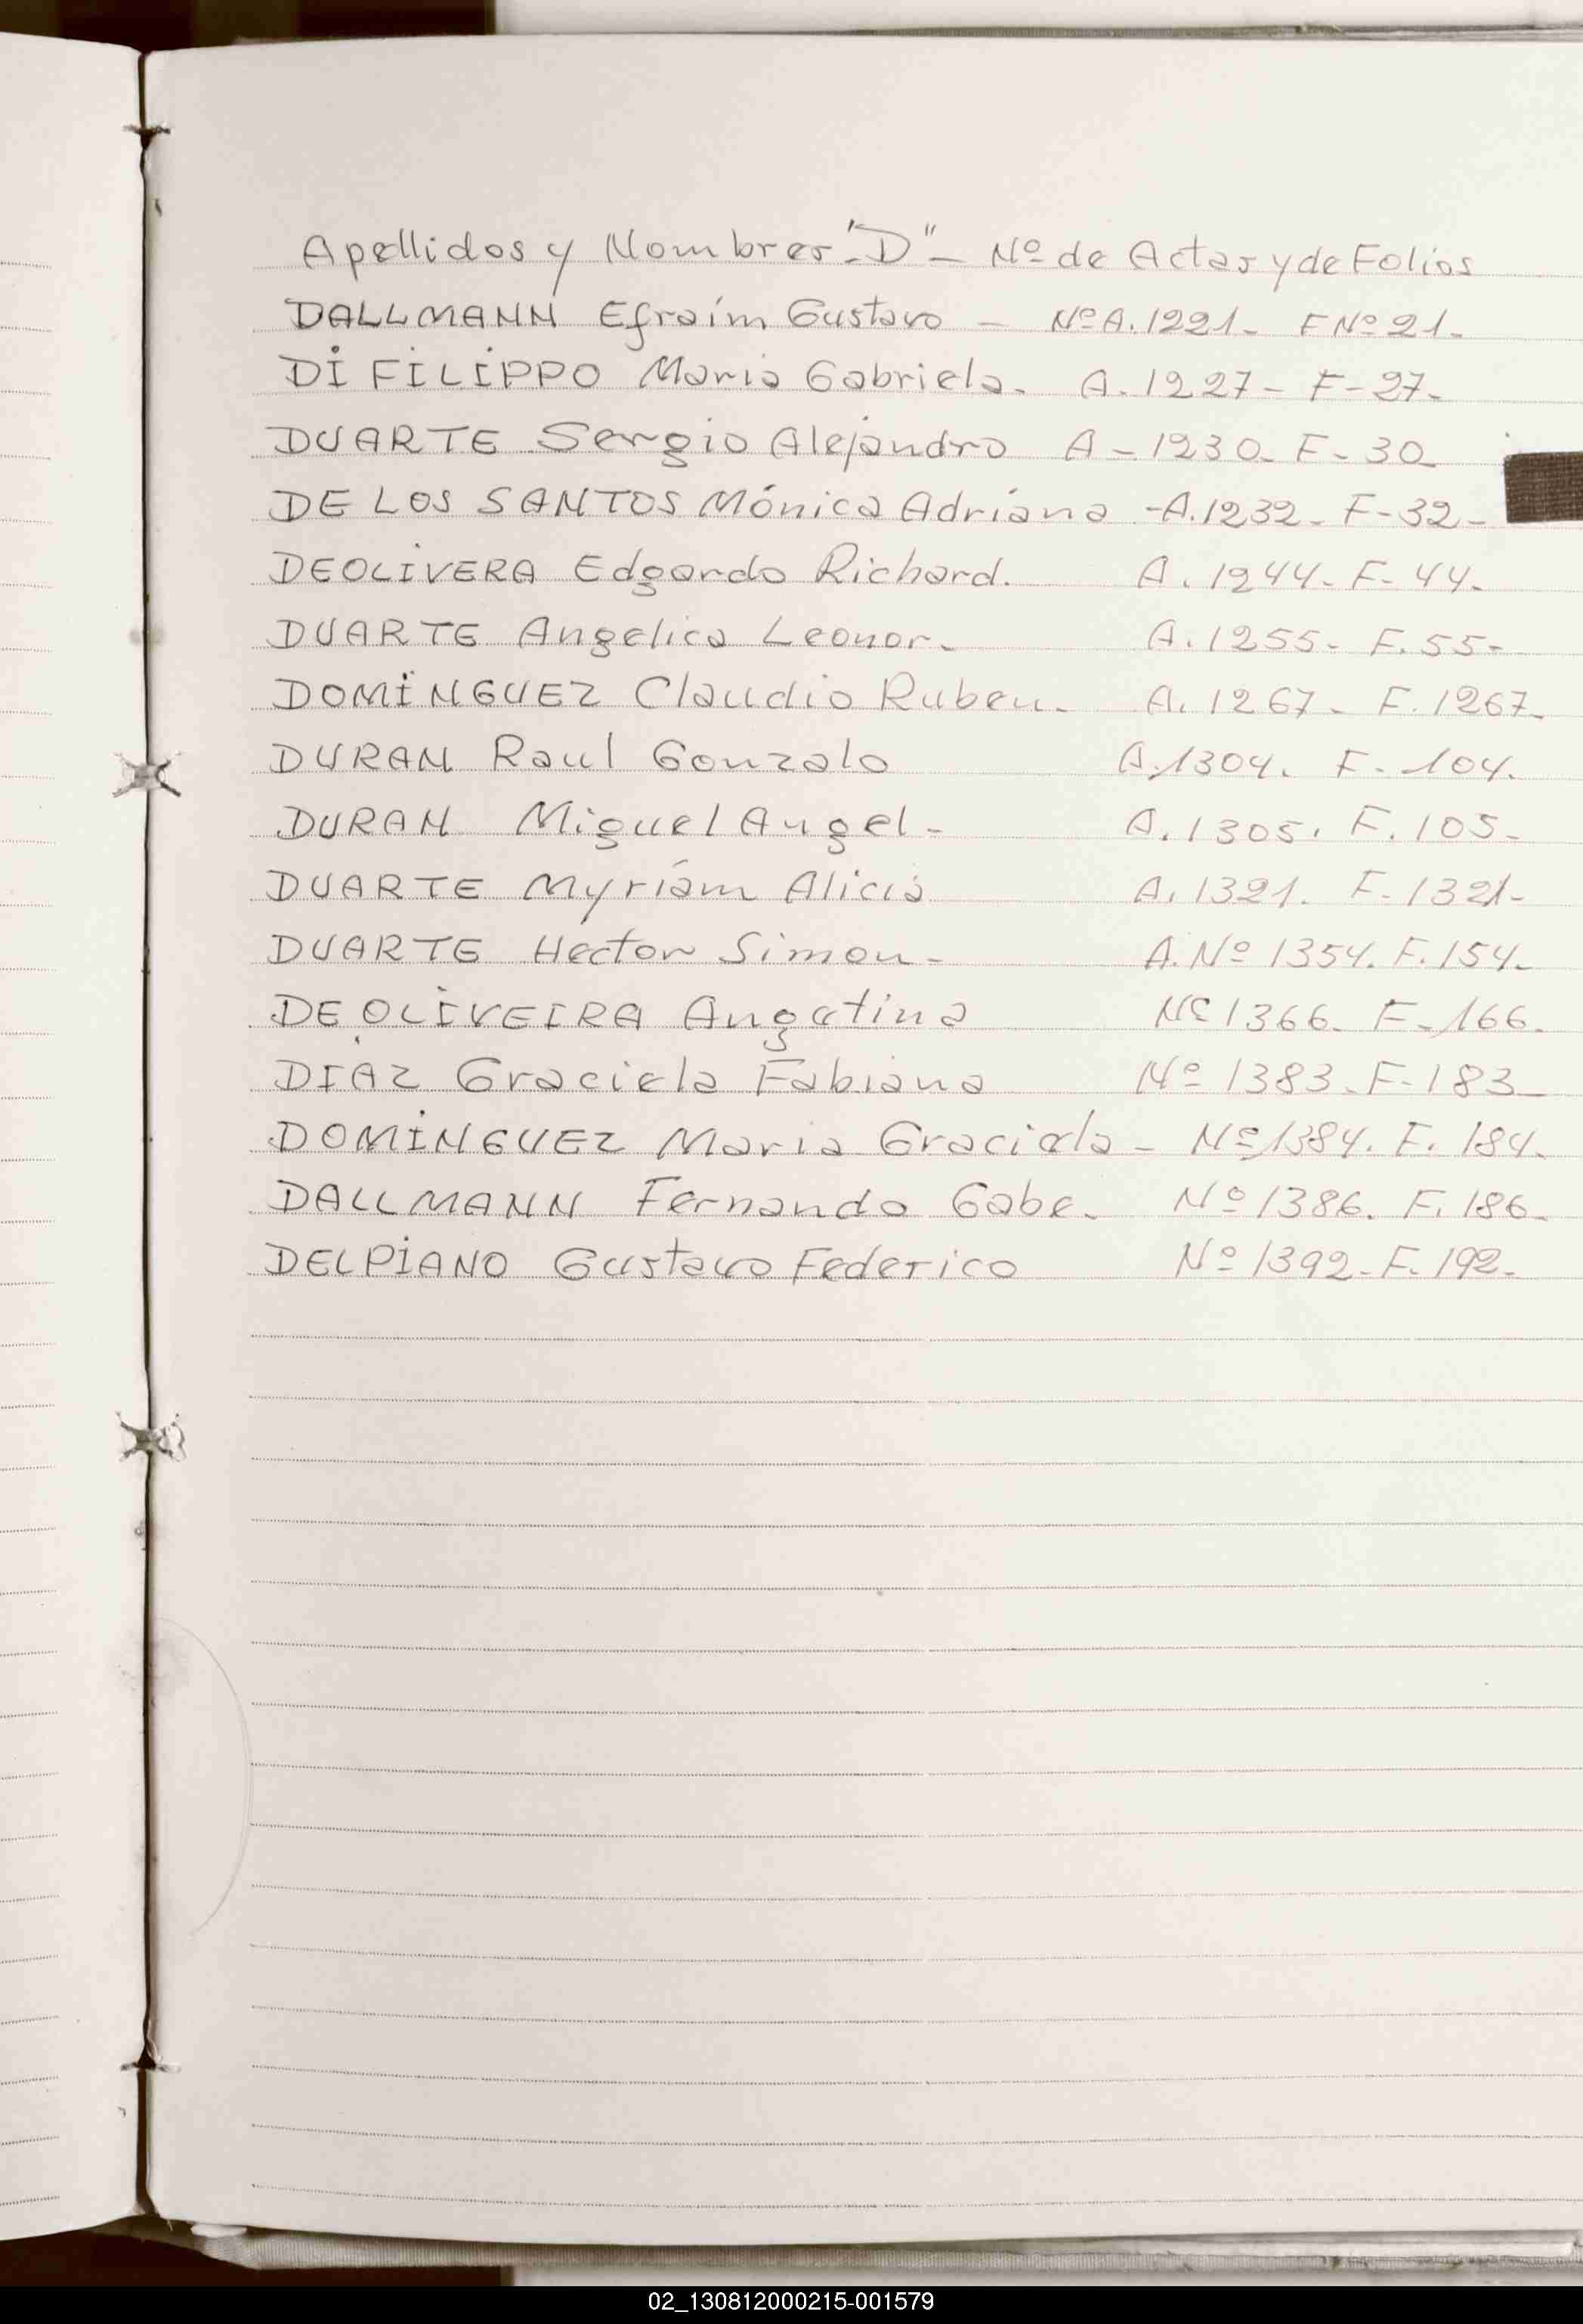 Apellidos y Nombres "D" - Nº de Actas y de Folios
DALLMANN Efraím Gustavo - Nº A. 1221- F Nº 21-
DI FILIPPO Maria Gabriela- A. 1227- F- 27-
DUARTE Sergio Alejandro A - 1230- F- 30
DE LOS SANTOS Mónica Adriana -A. 1232- F-32-
DEOLIVERA Edgardo Richard. A. 1244- F- 44-
DUARTE Angelica Leonor- A. 1255- F. 55-
DOMINGUEZ Claudio Ruben- A. 1267- F. 1267-
DURAN Raul Gonzalo A. 1304. F- 104.
DURAN Miguel Angel- A. 1305. F. 105-
DUARTE Myriam Alicia A. 1321. F- 1321-
DUARTE Hector Simon- A. Nº 1354. F. 154-
DE OLIVEIRA Angetina Nº 1366- F- 166.
DIAZ Graciela Fabiana Nº 1383- F-183-
DOMINGUEZ Maria Graciela - Nº 1384. F. 184-
DALLMANN Fernando Gabe. Nº 1386. F. 186-
DELPIANO Gustavo Federico Nº 1392- F. 192-
02_130812000215-001579